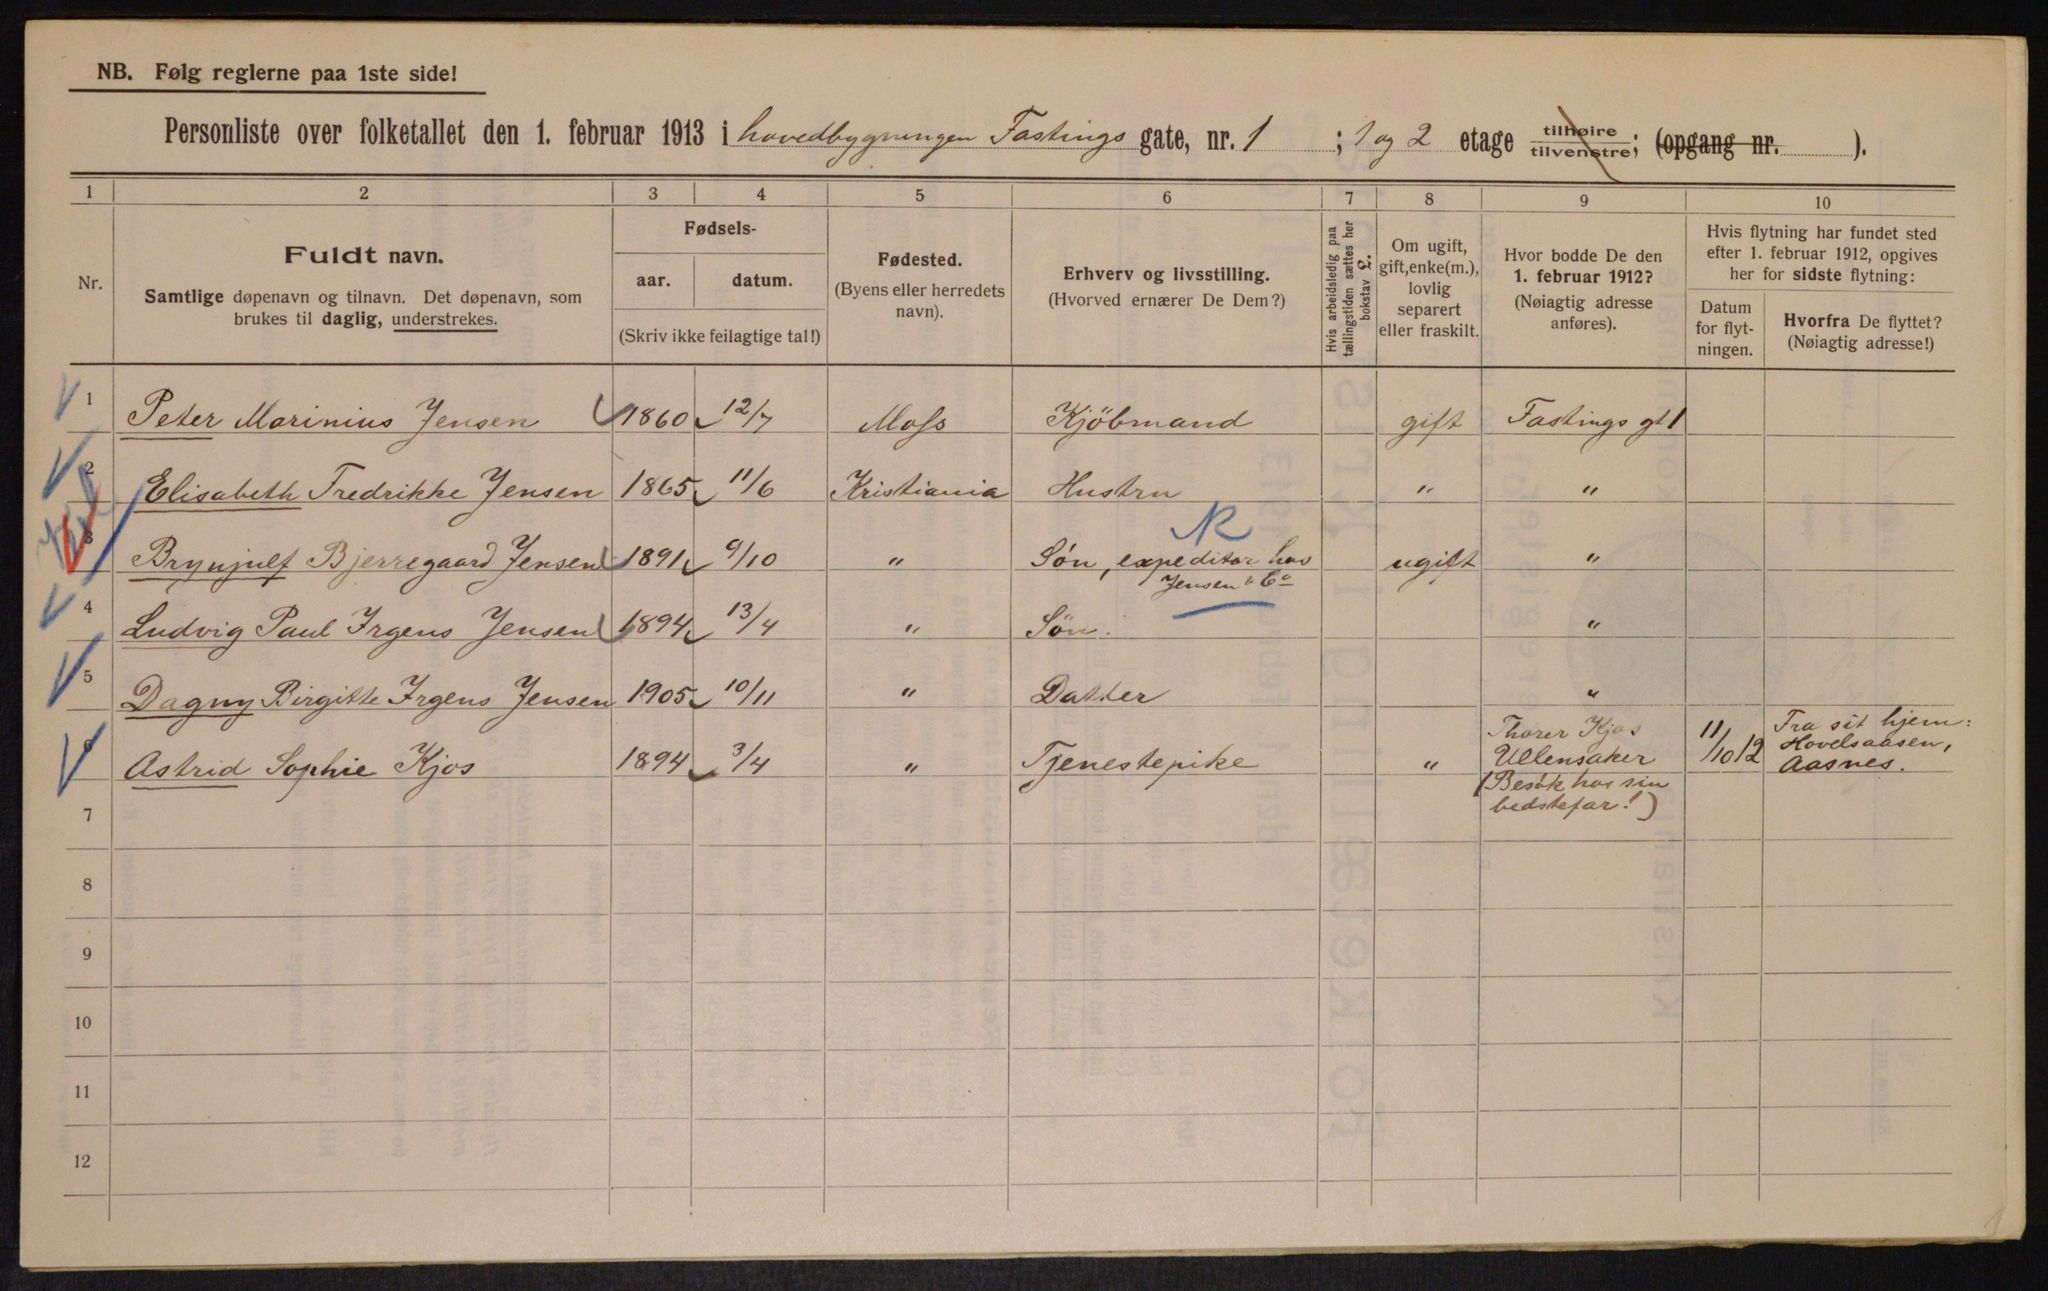 NB. Følg reglerne paa 1ste side!
Personliste over folketallet den 1. februar 1913 i hovedbygningen Fastings gate, nr. 1 ; 1 og 2 etage tilhøire tilvenstre; (opgang nr. ).
1 2 3 4 5 6 7 8 9 10
Nr.
Fuldt navn.
Samtlige døpenavn og tilnavn. Det døpenavn, som
brukes til daglig, understrekes.
Fødsels-
aar. datum.
(Skriv ikke feilagtige tal!)
Fødested.
(Byens eller herredets
navn).
Erhverv og livsstilling.
(Hvorved ernærer De Dem?)
Hvis arbeidsledig paa
tællingstiden sættes her
bokstav L.
Om ugift,
gift, enke(m.),
lovlig
separert
eller fraskilt.
Hvor bodde De den
1. februar 1912?
(Nøiagtig adresse
anføres).
Hvis flytning har fundet sted
efter 1. februar 1912, opgives
her for sidste flytning:
Datum
for flyt-
ningen.
Hvorfra De flyttet?
(Nøiagtig adresse!)
1 Peter Marinius Jensen 1860 12/7 Moss Kjöbmand gift Fastings gt 1
2 Elisabeth Fredrikke Jensen 1865 11/6 Kristiania Hustru " "
3 Brynjulf Bjerregaard Jensen 1891 9/10 " Sön, expeditør hos ugift "
Jensen & Co
4 Ludvig Paul Irgens Jensen 1894 13/4 " Sön. "
5 Dagny Birgitte Irgens Jensen 1905 10/11 " Datter "
6 Astrid Sophie Kjos 1894 3/4 " Tjenestepike " Thorer Kjos
Ullensaker
(Besök hos sin
bedstefar!)
11/10 12
Fra sit hjem:
Hovelsaasen,
Aasnes.
7
8
9
10
11
12